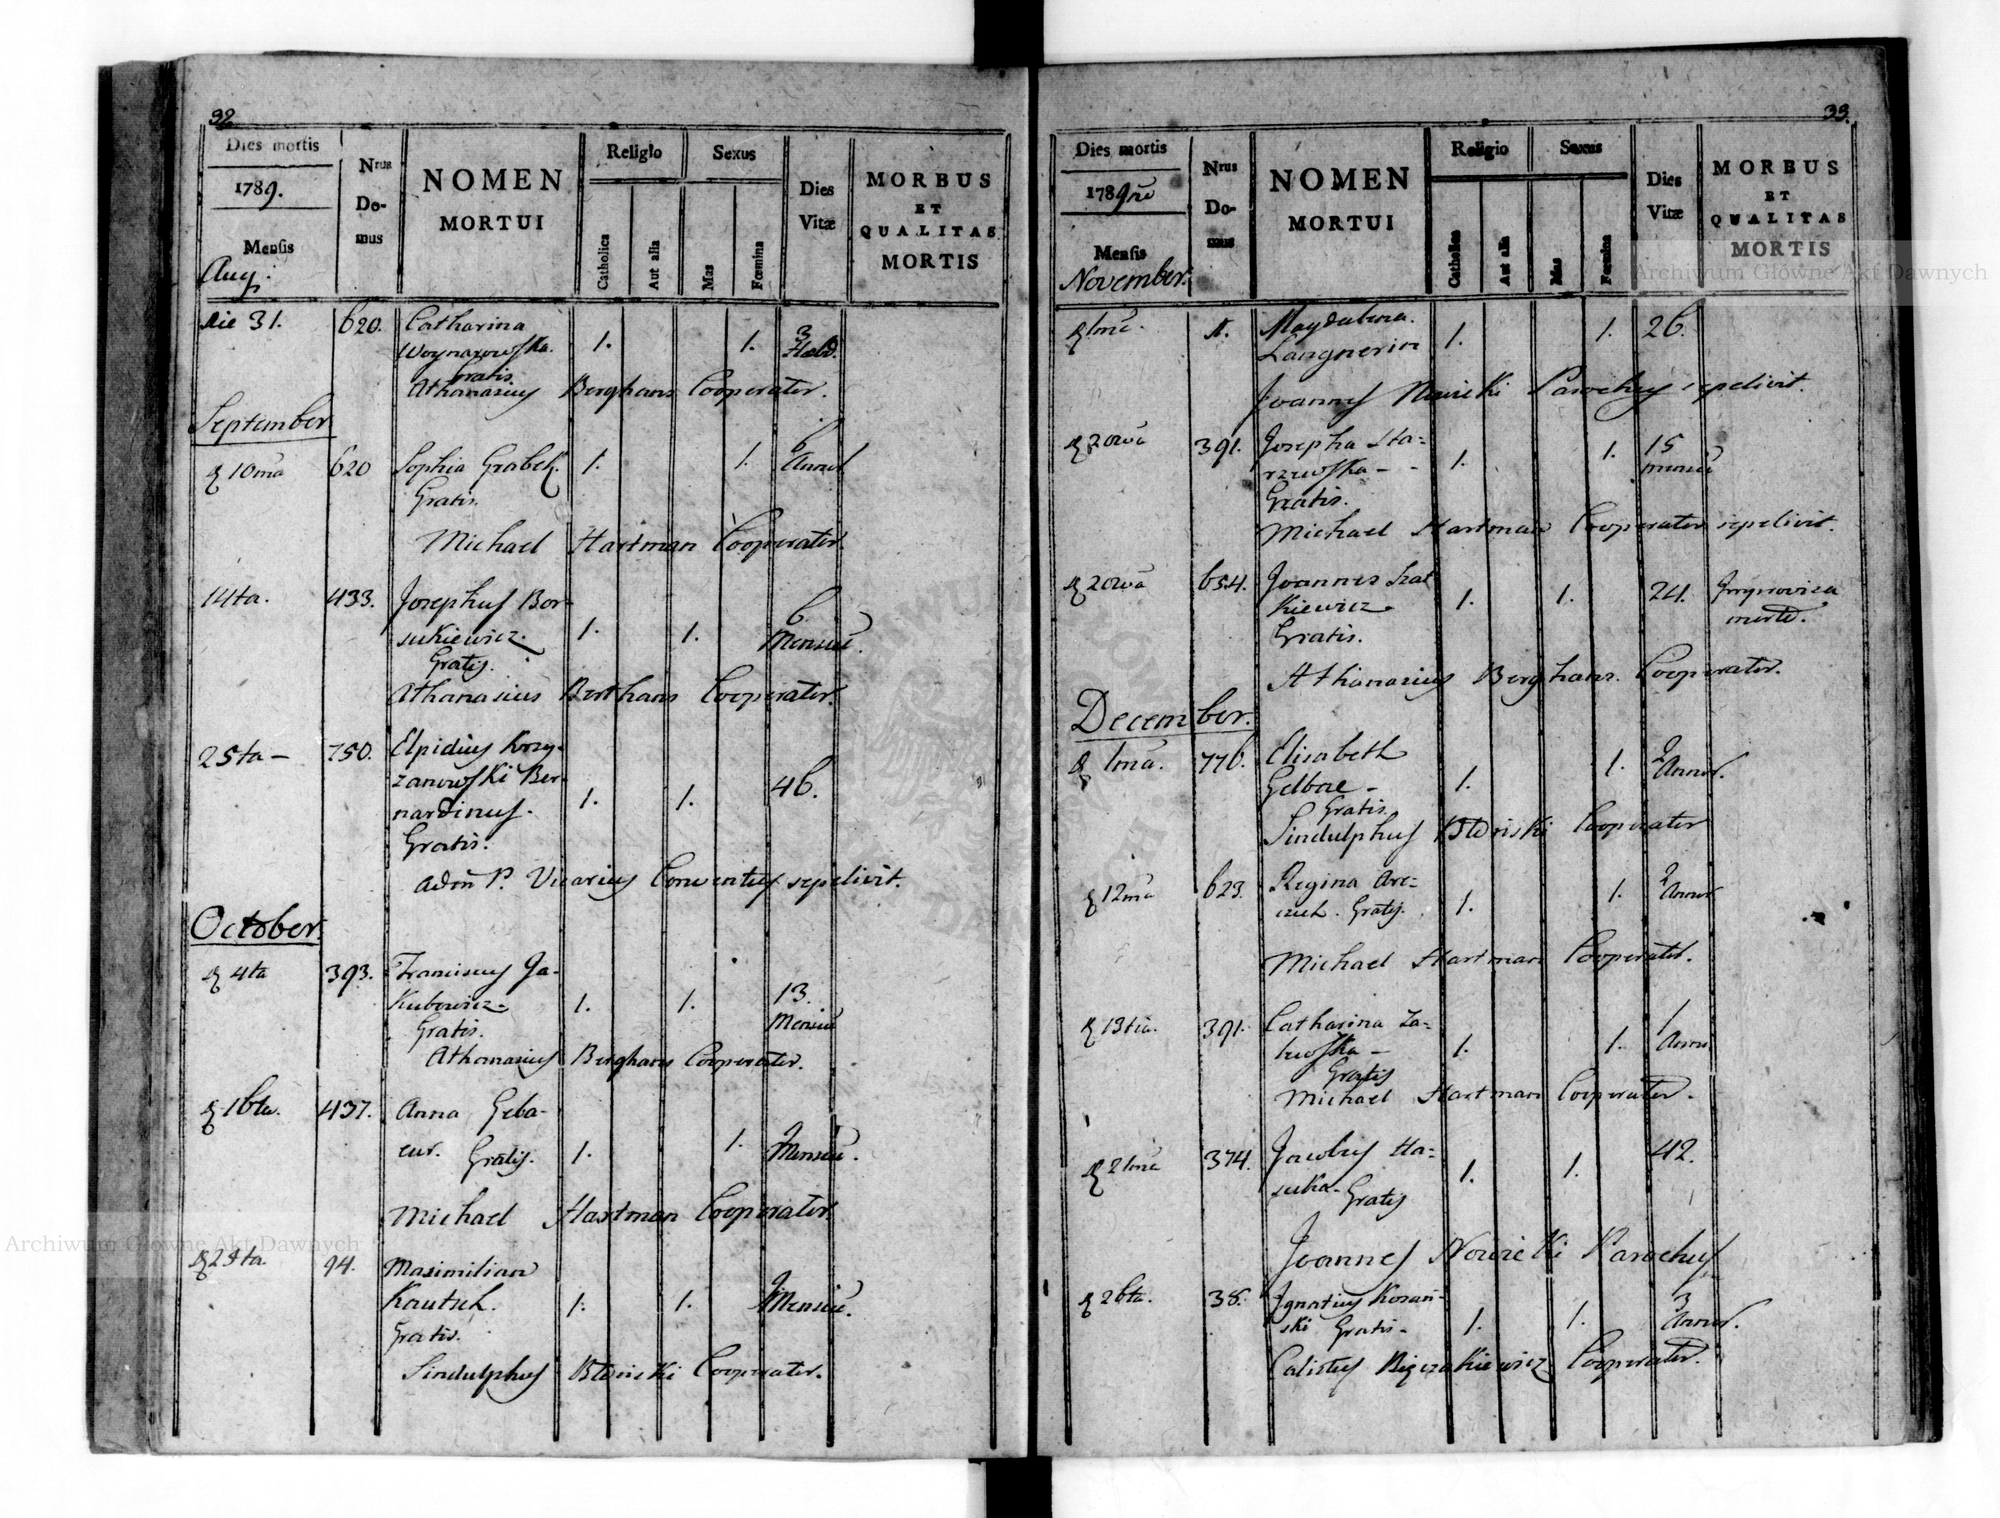 32
Dies mortis
1789.
Mensis
Aug:
Nrus
Do-
mus
NOMEN
MORTUI
Religio
Catholica
Aut alia
Sexus
Mas
Fœmina
Dies
Vitæ
MORBUS
ET
QUALITAS
MORTIS
die 31. 620. Catharina
Woynarowska. 1. 1. 3
Gratis
Athanasius Berghans Cooperator.
September
10ma 620 Sophia Grabek. 1. 1. 6
Gratis.
Michael Hartman Cooperator.
14ta. 433. Josephus Bor-
sukiewicz. 1. 1. 6
Mensiū.
Gratis.
Athanasius Berthans Cooperator.
25ta - 750. Elpidius Krzy-
zanowski Ber-
nardinus. 1. 1. 46.
Gratis.
P. Vicarius Conventus sepelivit.
October
4ta 393. Franciscus Ja-
kubowicz- 1. 1. 13.
Mensiū
Gratis.
Athanasius Berghans Cooperator.
16ta. 437. Anna Geba-
eur. Gratis. 1. 1. 2
Mensiū.
Michael Hartman Cooperator.
24ta. 94. Maximilian
Kautsch. 1. 1. Mensiū.
Gratis.
Sindulphus Cooperator.
33.
Dies mortis
1789
Mensis
November.
Nrus
Do-
mus
NOMEN
MORTUI
Religio
Catholica
Aut alia
Sexus
Mas
Fœmina
Dies
Vitæ
MORBUS
ET
QUALITAS
MORTIS
1mā. 1. Magdalena
Langnerin 1. 1. 26.
Joannes Nowicki Parochus sepelivit.
391. Josepha Sta-
rzewska - - 1. 1. 15
mensiū
Gratis.
Michael Hartman Cooperator sepelivit.
654. Joannes
kiewicz 1. 1. 24. Improvisa
morte.
Gratis.
Athanasius Berghans. Cooperator.
December.
1mā. 776. Elisabeth
1. 1. 2
Annor.
Gratis
Sindulphus Cooperator
12mā 623. Regina
Gratis. 1. 1. 2
Annor
Michael Hartman Cooperator.
13tia. 391. Catharina Za-
- 1. 1. 1
Gratis
Michael Hartman Cooperator.
21mā 374. Jacobus Ha-
suka- Gratis 1. 1. 42.
Joannes Nowicki Parochus
26ta. 38. Ignatius
ski Gratis- 1. 1. 3
Annor.
Calistus Cooperator.
Archiwum Główne Akt Dawnych
Archiwum Główne Akt Dawnych